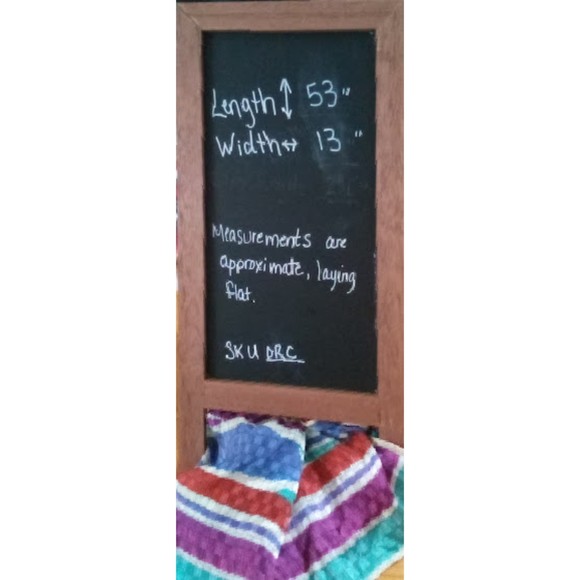 Length ↕ 53"
Width ↔ 13"
Measurements are
approximate, laying
flat.
SKU DRC